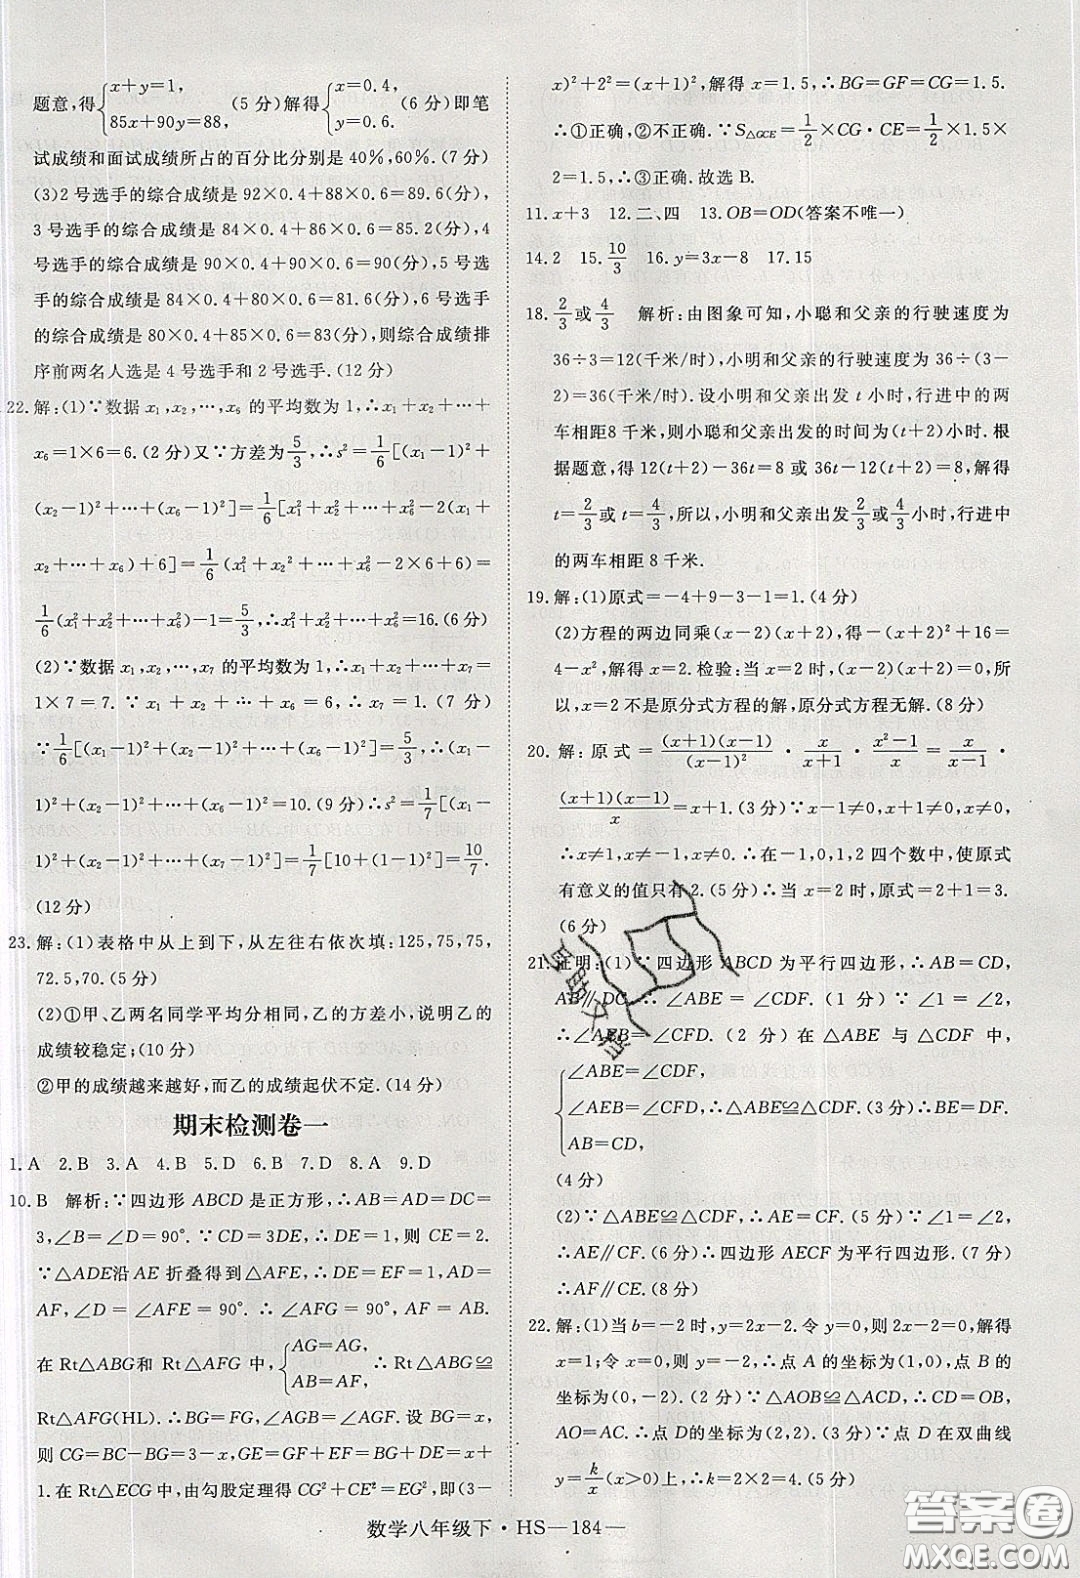 题意,得{x+y=1, 85x+90y=88, (5分)解得{x=0.4, y=0.6. (6分)即笔
试成绩和面试成绩所占的百分比分别是40%,60%.(7分)
(3)2号选手的综合成绩是92×0.4+88×0.6=89.6(分),
3号选手的综合成绩是84×0.4+86×0.6=85.2(分),4
号选手的综合成绩是90×0.4+90×0.6=90(分),5号选
手的综合成绩是84×0.4+80×0.6=81.6(分),6号选手
的综合成绩是80×0.4+85×0.6=83(分),则综合成绩排
序前两名人选是4号选手和2号选手.(12分)
22.解:(1)∵数据x₁,x₂,…,x₆的平均数为1,∴x₁+x₂+…+
x₆=1×6=6.(2分)又∵方差为5/3,∴s²=1/6[(x₁-1)²+
(x₂-1)²+…+(x₆-1)²]=1/6[x₁²+x₂²+…+x₆²-2(x₁+
x₂+…+x₆)+6]=1/6(x₁²+x₂²+…+x₆²-2×6+6)=
1/6(x₁²+x₂²+…+x₆²)-1=5/3,∴x₁²+x₂²+…+x₆²=16.(6分)
(2)∵数据x₁,x₂,…,x₇的平均数为1,∴x₁+x₂+…+x₇=
1×7=7.∵x₁+x₂+…+x₆=6,∴x₇=1.(7分)
∵1/6[(x₁-1)²+(x₂-1)²+…+(x₆-1)²]=5/3,∴(x₁-
1)²+(x₂-1)²+…+(x₆-1)²=10.(9分)∴s²=1/7[(x₁-
1)²+(x₂-1)²+…+(x₇-1)²]=1/7[10+(1-1)²]=10/7.
(12分)
23.解:(1)表格中从上到下,从左往右依次填:125,75,75,
72.5,70.(5分)
(2)①甲、乙两名同学平均分相同,乙的方差小,说明乙的
成绩较稳定;(10分)
②甲的成绩越来越好,而乙的成绩起伏不定.(14分)
期末检测卷一
1.A 2.B 3.A 4.B 5.D 6.B 7.D 8.A 9.D
10.B 解析:∵四边形ABCD是正方形,∴AB=AD=DC=
3,∠B=∠D=90°.∵CD=3DE,∴DE=1,则CE=2.
∵△ADE沿AE折叠得到△AFE,∴DE=EF=1,AD=
AF,∠D=∠AFE=90°.∴∠AFG=90°,AF=AB.
在Rt△ABG和Rt△AFG中,{AG=AG, AB=AF, ∴Rt△ABG≌
Rt△AFG(HL).∴BG=FG,∠AGB=∠AGF.设BG=x,
则CG=BC-BG=3-x,GE=GF+EF=BG+DE=x+
1.在Rt△ECG中,由勾股定理得CG²+CE²=EG²,即(3-
x)²+2²=(x+1)²,解得x=1.5,∴BG=GF=CG=1.5.
∴①正确,②不正确.∵S△GCE=1/2×CG·CE=1/2×1.5×
2=1.5,∴③正确.故选B.
11.x+3 12.二、四 13.OB=OD(答案不唯一)
14.2 15.10/3 16.y=3x-8 17.15
18.2/3或4/3 解析:由图象可知,小聪和父亲的行驶速度为
36÷3=12(千米/时),小明和父亲的行驶速度为36÷(3-
2)=36(千米/时).设小明和父亲出发t小时,行进中的两
车相距8千米,则小聪和父亲出发的时间为(t+2)小时.根
据题意,得12(t+2)-36t=8或36t-12(t+2)=8,解得
t=2/3或t=4/3,所以,小明和父亲出发2/3或4/3小时,行进中
的两车相距8千米.
19.解:(1)原式=-4+9-3-1=1.(4分)
(2)方程的两边同乘(x-2)(x+2),得-(x+2)²+16=
4-x²,解得x=2.检验:当x=2时,(x-2)(x+2)=0,所
以,x=2不是原分式方程的解,原分式方程无解.(8分)
20.解:原式=(x+1)(x-1)/(x-1)²·x/(x+1)·(x²-1)/x=x/(x-1)·
(x+1)(x-1)/x=x+1.(3分)∵x-1≠0,x+1≠0,x≠0,
∴x≠1,x≠-1,x≠0.∴在-1,0,1,2四个数中,使原式
有意义的值只有2.(5分)∴当x=2时,原式=2+1=3.
(6分)
21.证明:(1)∵四边形ABCD为平行四边形,∴AB=CD,
AB∥DC.∴∠ABE=∠CDF.(1分)∵∠1=∠2,
∴∠AEB=∠CFD.(2分)在△ABE与△CDF中,
{∠ABE=∠CDF,
∠AEB=∠CFD, ∴△ABE≌△CDF.(3分)∴BE=DF.
AB=CD,
(4分)
(2)∵△ABE≌△CDF,∴AE=CF.(5分)∵∠1=∠2,
∴AE∥CF.(6分)∴四边形AECF为平行四边形.(7分)
∴AF∥CE.(8分)
22.解:(1)当b=-2时,y=2x-2.令y=0,则2x-2=0,解得
x=1;令x=0,则y=-2,∴点A的坐标为(1,0),点B的
坐标为(0,-2).(2分)∵△AOB≌△ACD,∴CD=OB,
AO=AC.∴点D的坐标为(2,2).(3分)∵点D在双曲线
y=k/x(x>0)上,∴k=2×2=4.(5分)
数学八年级下·HS—184—
答案圈
MXQE.COM